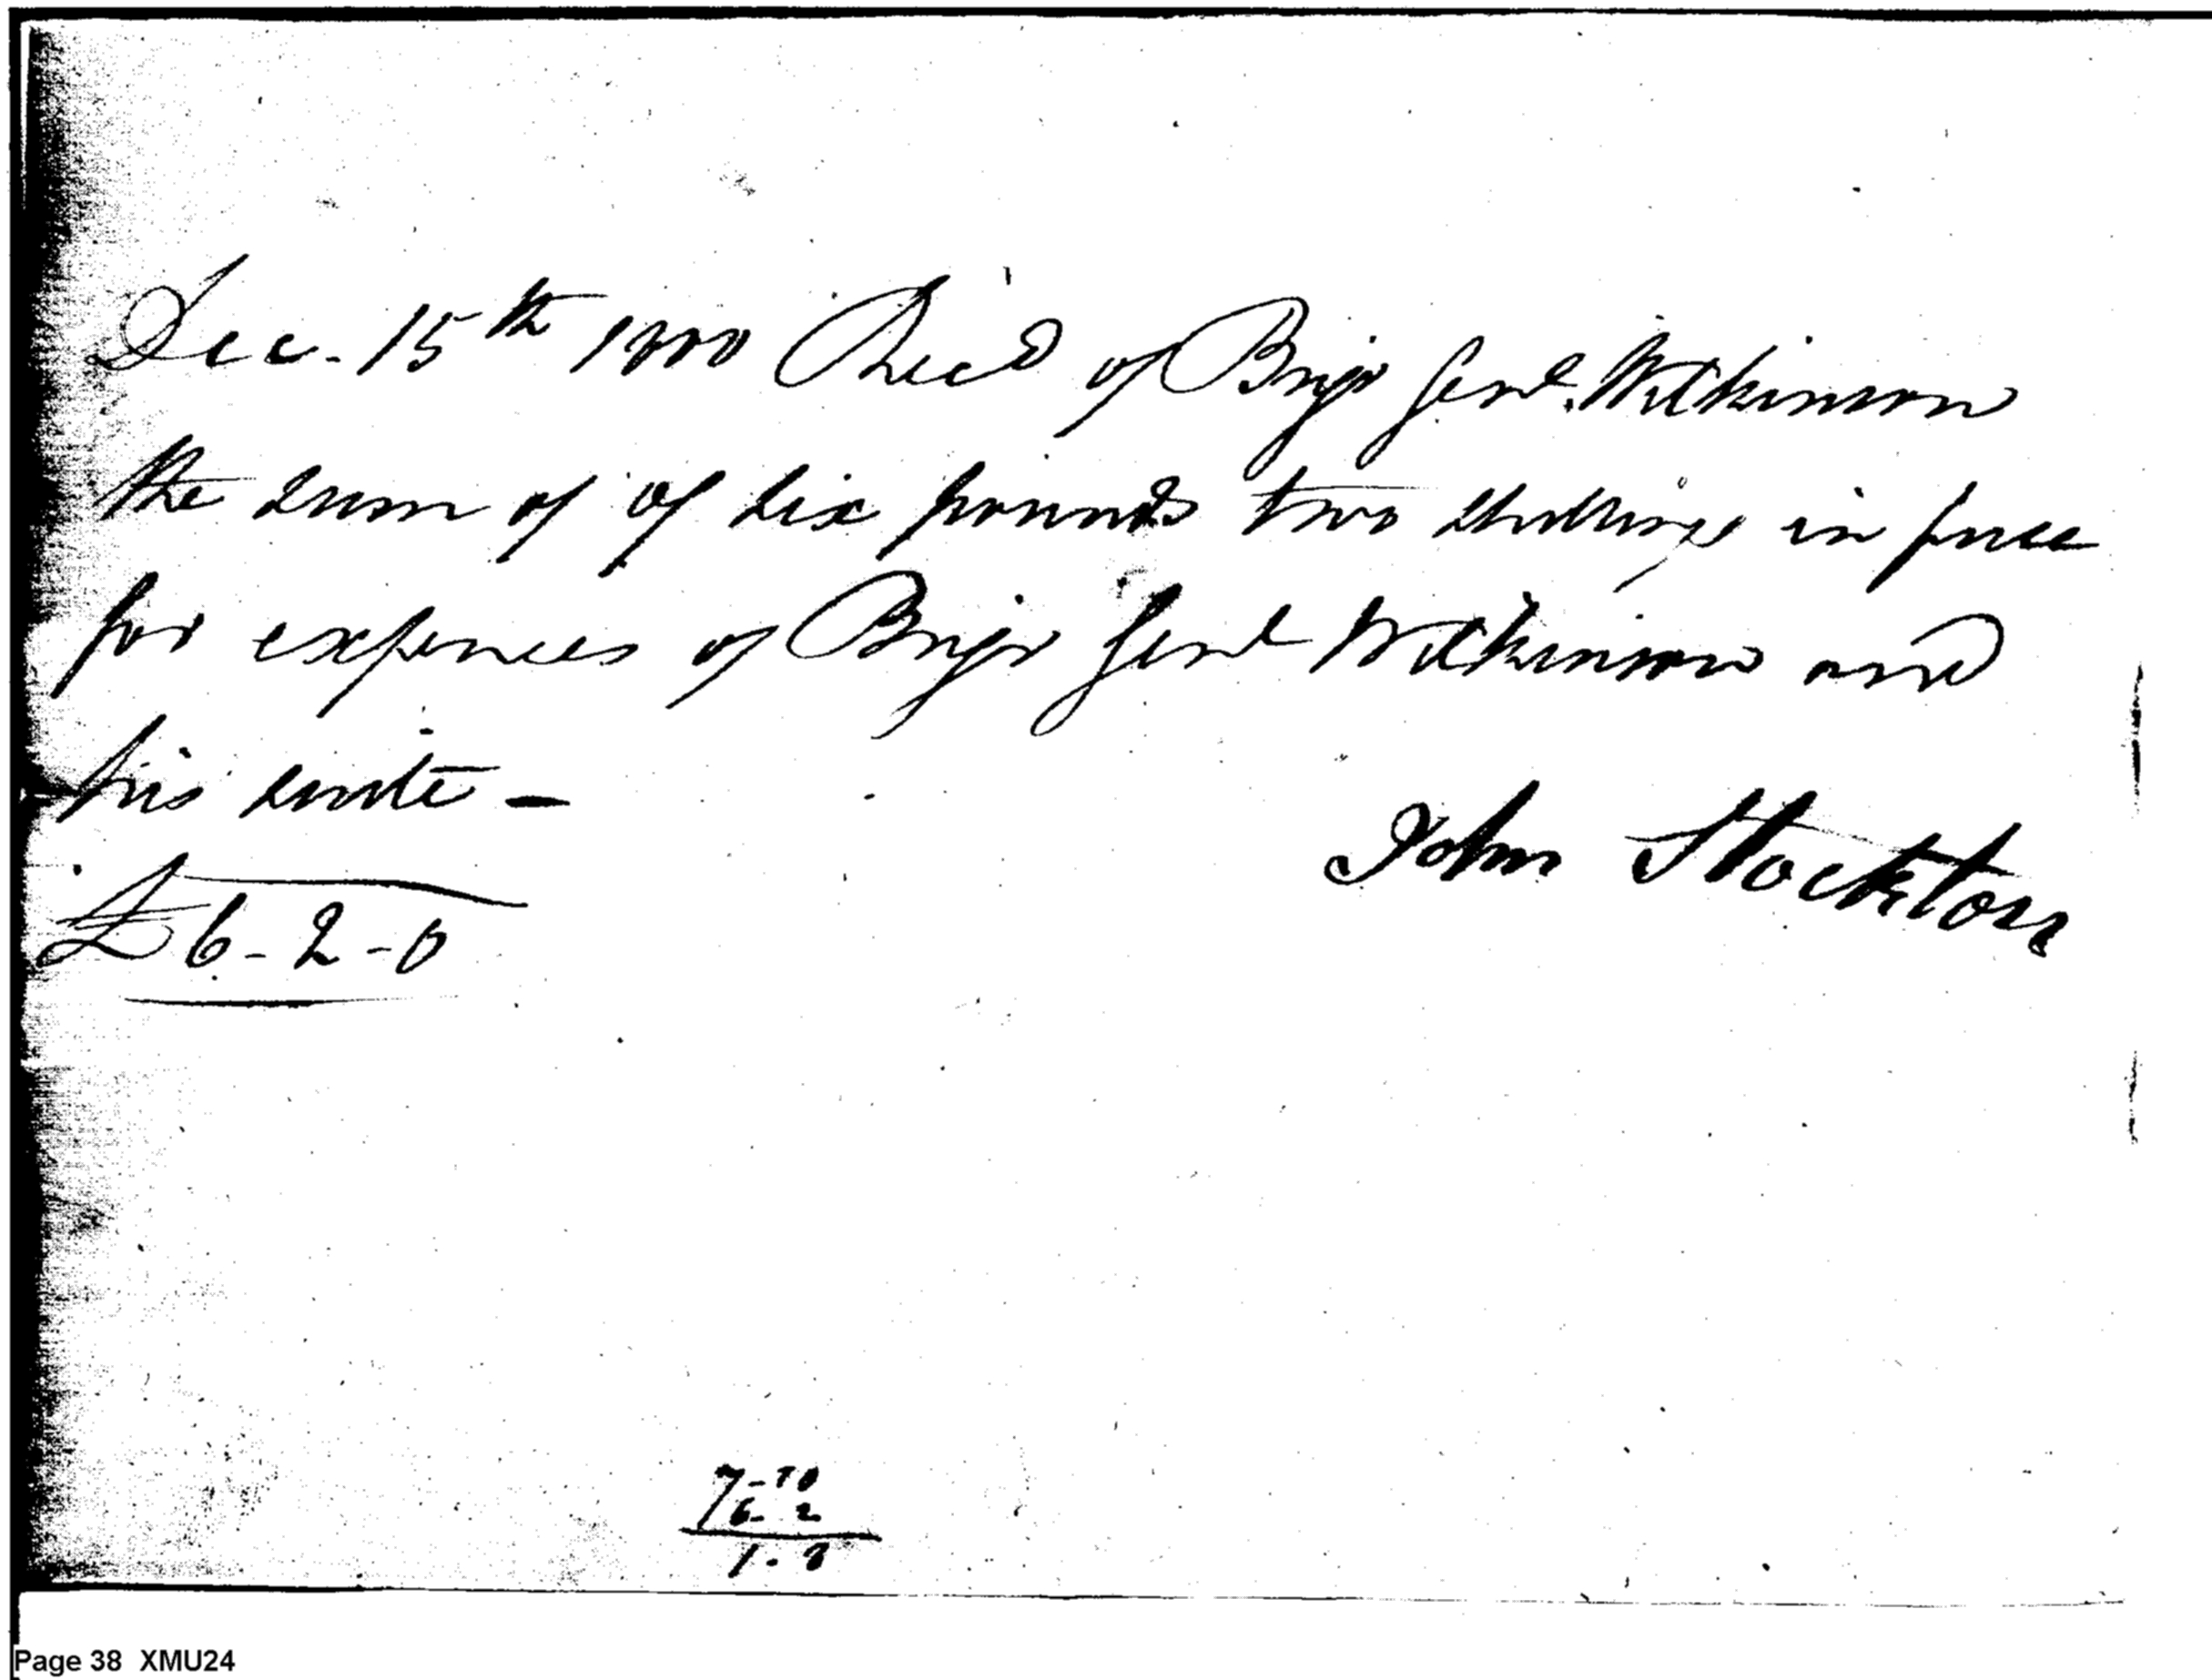 Dec. 15th 1800 Rec'd of Brigr Genl. Wilkinson
the sum of of six pounds two shillings in full
for expences of Brigr Genl Wilkinson and
his suite –
John Stockton
£ 6 - 2 - 0
7 - 10
6 - 2
1 - 8
Page 38 XMU24